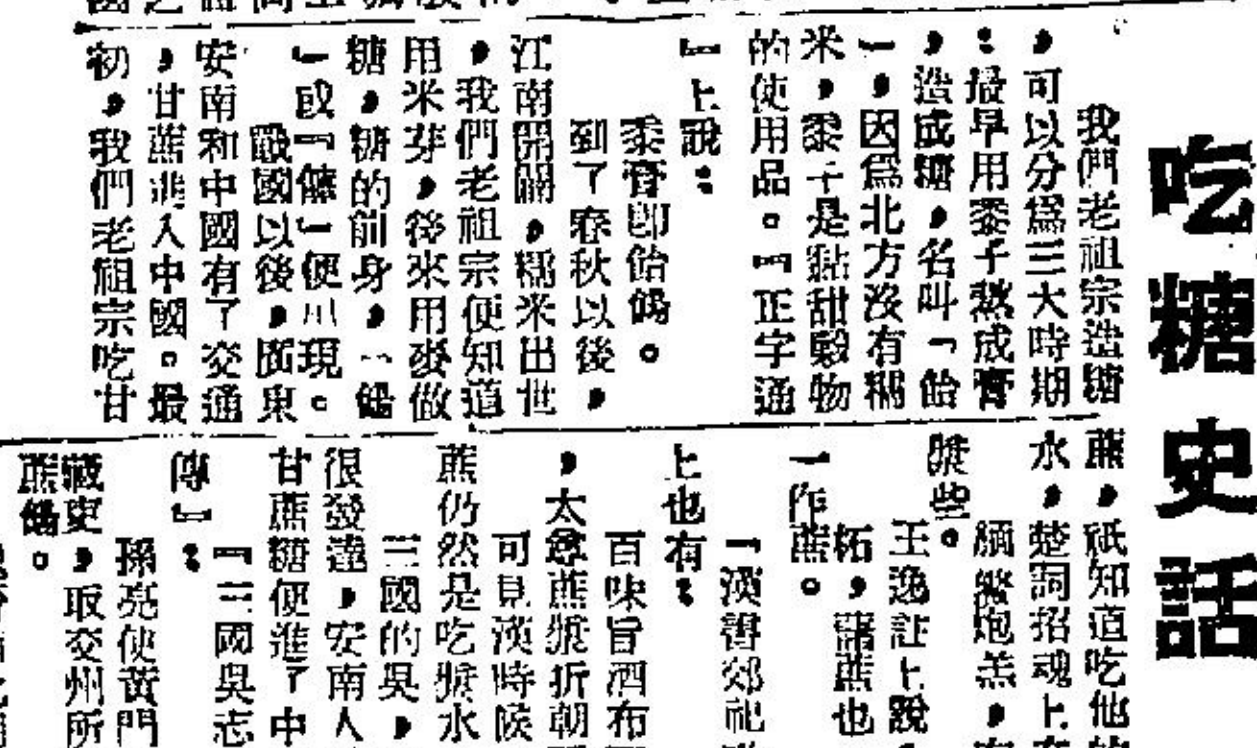 吃糖史話
我們老祖宗造糖
，可以分爲三大時期
：最早用黍子熬成膏
，造成糖，名叫「飴
」，因爲北方沒有糯
米，黍子是黏甜穀物
的使用品。『正字通
』上說：
黍膏即飴餳。
到了春秋以後，
江南開闢，糯米出世
，我們老祖宗便知道
用米芽，後來用麥做
糖，糖的前身，「餳
」或『餹』便出現。
戰國以後，廣東
安南和中國有了交通
，甘蔗進入中國。最
初，我們老祖宗吃甘
蔗，祇知道吃他
水，楚詞招魂上
炮羔，
漿些。
王逸註上說
柘，藷蔗也
一作蔗。
『漢書郊祀
上也有：
百味旨酒布
，太尊蔗漿折朝
可見漢時候
蔗仍然是吃漿水
三國的吳，
很發達，安南人
甘蔗糖便進了中
『三國吳志
傳』：
孫亮使黃門
藏吏，取交州所
蔗餳。